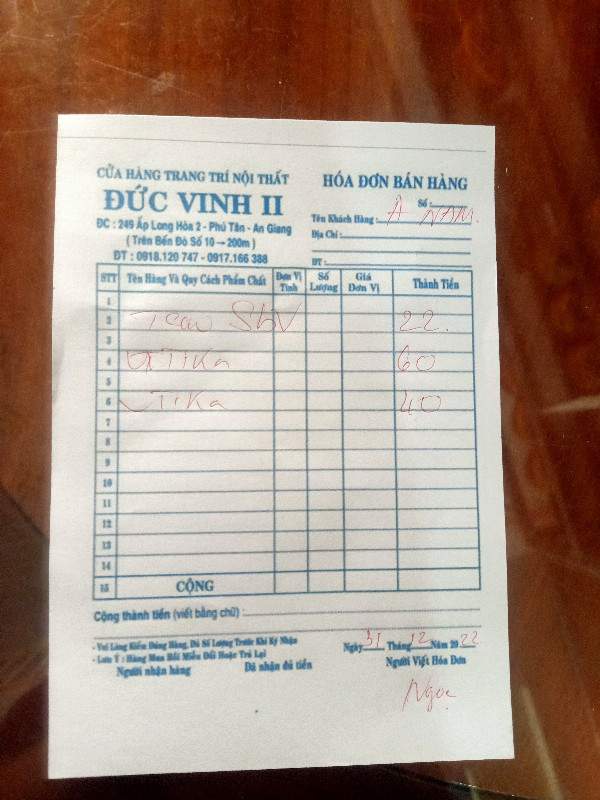 CỬA HÀNG TRANG TRÍ NỘI THẤT
ĐỨC VINH II
ĐC : 249 Ấp Long Hòa 2 - Phú Tân - An Giang
( Trên Bến Đò Số 10 → 200m )
ĐT : 0918.120 747 - 0917.166 388
HÓA ĐƠN BÁN HÀNG
Số :
Tên Khách Hàng : A NAM.
Địa Chỉ :
ĐT :
STT Tên Hàng Và Quy Cách Phẩm Chất Đơn Vị Tính Số Lượng Giá Đơn Vị Thành Tiền
1
2 22.
3
4 60
5
6 TiKa 40
7
8
9
10
11
12
13
14
15 CỘNG
Cộng thành tiền (viết bằng chữ) :
- Vui Lòng Kiểm Đúng Hàng, Đủ Số Lượng Trước Khi Ký Nhận
- Lưu Ý : Hàng Mua Rồi Miễn Đổi Hoặc Trả Lại
Ngày 31 Tháng 12 Năm 2022
Người nhận hàng Đã nhận đủ tiền Người Viết Hóa Đơn
Ngọc